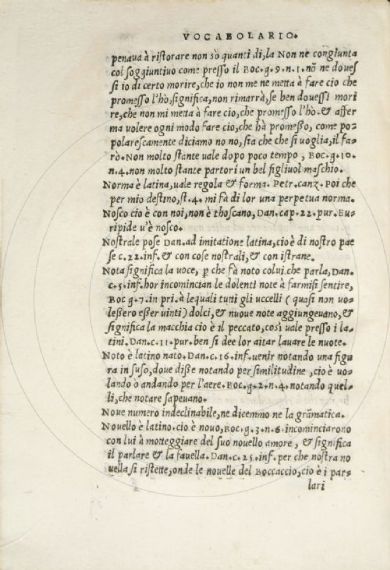 VOCABOLARIO.
penaua à ristorare non sò quanti dì, la Non ne congiunta
col soggiuntiuo come presso il Boc. g. 9. n. 1. nõ ne doues
si io di certo morire, che io non me ne metta à fare cio che
promesso l'hò, significa, non rimarrà, se ben douessi mori
re, che non mi metta à fare cio, che promesso l'hò. & affer
ma volere ogni modo fare cio, che hà promesso, come po-
polarescamente diciamo no no, sia che che si uoglia, il fa-
rò. Non molto stante uale dopo poco tempo, Boc. g. 10.
n. 4. non molto stante partorì un bel figliuol maschio.
Norma è latina, uale regola & forma. Petr. canz. Poi che
per mio destino, st. 4. mi fà di lor una perpetua norma.
Nosco cio è con noi, non è thoscano, Dan. cap. 22. pur. Eu-
ripide u'è nosco.
Nostrale pose Dan. ad imitatione latina, cio è di nostro pae
se c. 22. inf. & con cose nostrali, & con istrane.
Nota significa la uoce, p che fà noto colui che parla, Dan.
c. 5. inf. hor incomincian le dolenti note à farmisi sentire,
Boc g. 7. in pri. à le quali tuni gli uccelli (quasi non uo-
lessero esser uinti) dolci, & nuoue note aggiungeuano, &
significa la macchia cio è il peccato, così uale presso i la-
tini. Dan. c. 11. pur. ben si dee lor aitar lauare le nuote.
Noto è latino nato. Dan. c. 16. inf. uenir notando una figu
ra in suso, doue disse notando per similitudine, cio è uo-
lando ò andando per l'aere. Boc. g. 2. n. 4. notando quel-
li, che notare sapeuano.
Noue numero indeclinabile, ne dicemmo ne la grãmatica.
Nouello è latino. cio è nouo, Boc. g. 3. n. 6. incominciarono
con lui à motteggiare del suo nouello amore, & significa
il parlare & la fauella. Dan. c. 25. inf. per che nostra no
uella si ristette, onde le nouelle del Boccaccio, cio è i par-
lari